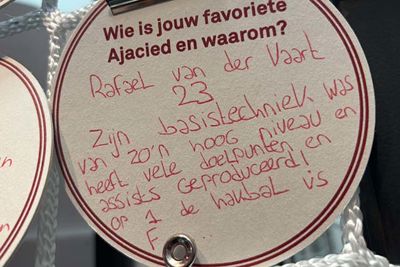 Wie is jouw favoriete
Ajacied en waarom?
Rafael van der Vaart
23
Zijn basistechniek was
van zo'n hoog niveau en
heeft vele doelpunten en
assists geproduceerd!
op 1 de hakbal vs
F